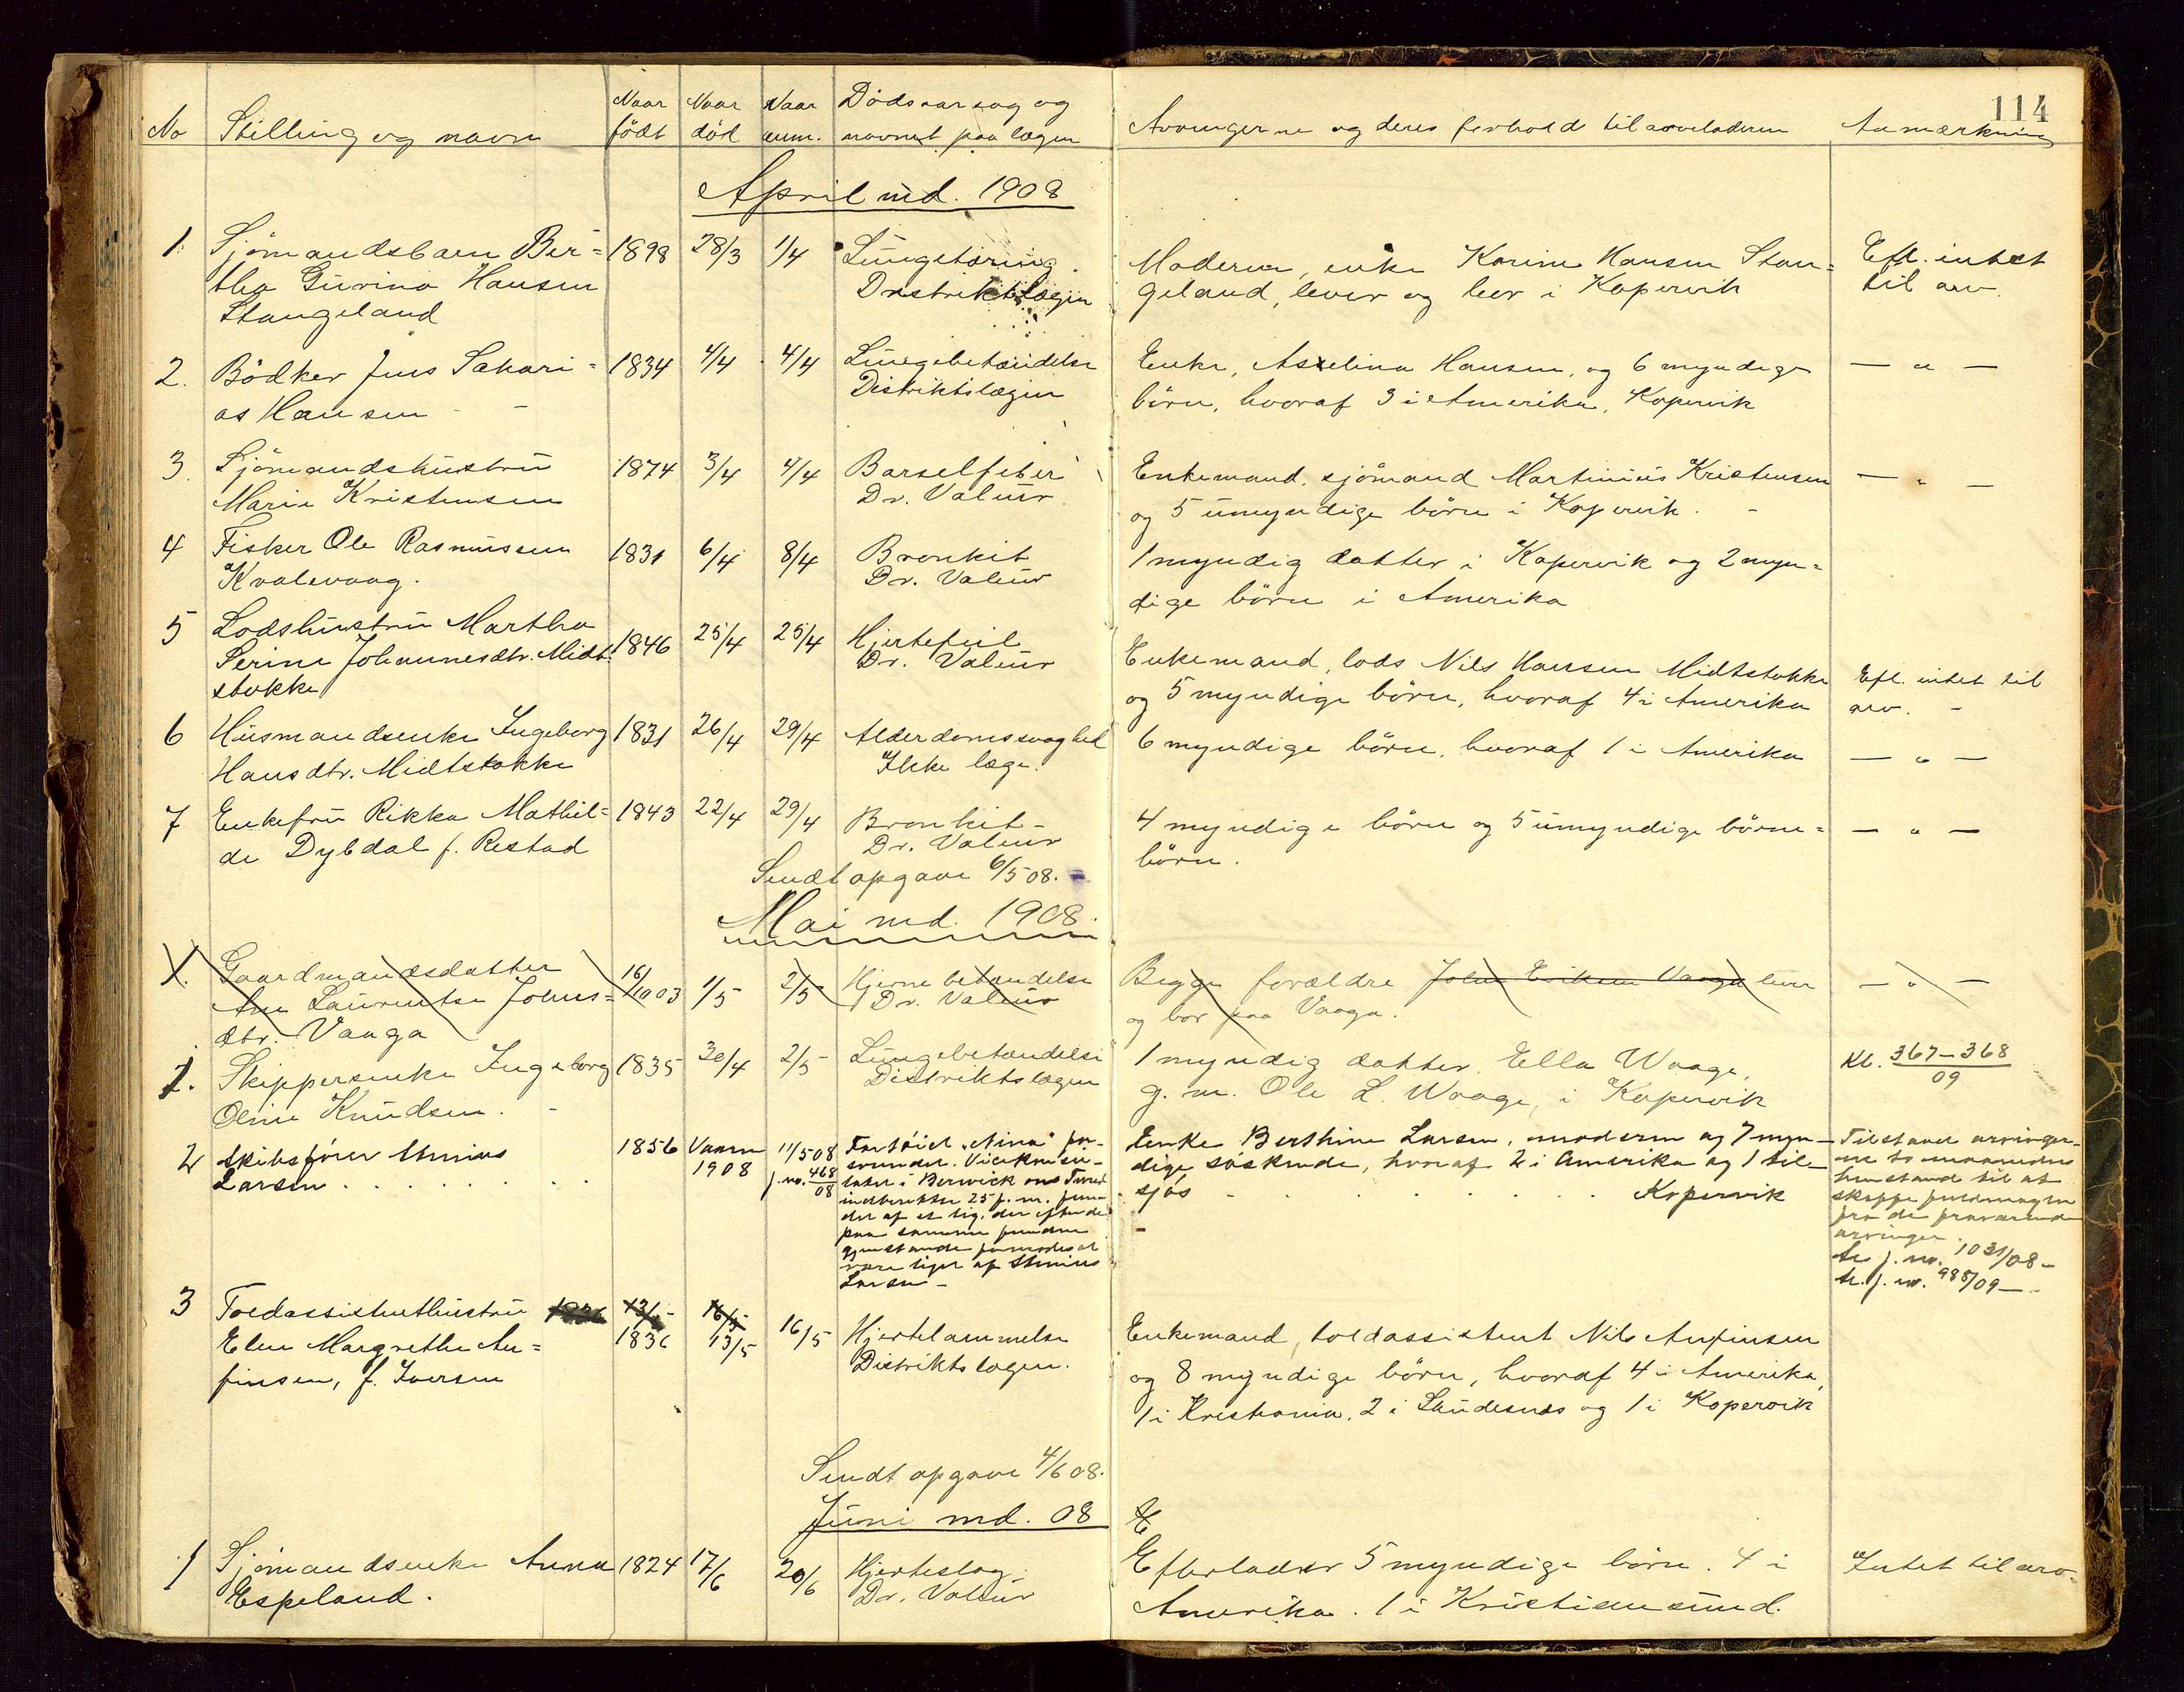 114
No Stilling og navn Naar født Naar død Naar anm. Dødsaarsag og navnet paa lægen Arvingerne og deres forhold til arveladeren Anmærkning
April md. 1908
1. Sjömandsbarn Ber= 1898 28/3 1/4 Lungetæring. Moderen, enke Karine Hansen Stan= Efl. intet
tha Gurina Hansen Distriktslægen geland, lever og bor i Kopervik til arv.
Stangeland
2. Bödker Jens Sakari= 1834 4/4 4/4 Lungebetændelse Enke, Aselina Hansen, og 6 myndige — " —
as Hansen Distriktslægen börn, hvoraf 3 i Amerika, Kopervik
3. Sjömandshustru 1874 3/4 4/4 Barselfeber Enkemand, sjömand Martinius Kristensen — " —
Marie Kristensen Dr. Valeur og 5 umyndige börn i Kopervik.
4 Fisker Ole Rasmussen 1831 6/4 8/4 Bronkit 1 myndig datter i Kopervik og 2 myn=
Kvalevaag. Dr. Valeur dige börn i Amerika
5 Lodshustru Martha 1846 25/4 25/4 Hjertefeil Enkemand, lods Nils Hansen Midtstokke Efl. intet til
Serine Johannesdtr. Midt= Dr. Valeur og 5 myndige börn, hvoraf 4 i Amerika arv.
stokke
6 Husmandsenke Ingeborg 1831 26/4 29/4 Alderdomssvaghed 6 myndige börn, hvoraf 1 i Amerika — " —
Hansdtr. Midtstokke Ikke læge.
7 Enkefru Rikka Mathil= 1843 22/4 29/4 Bronkit 4 myndige börn og 5 umyndige börne= — " —
de Dybdal f. Restad Dr. Valeur börn.
Sendt opgave 6/5 08.
Mai md. 1908.
1. Gaardmandsdatter 16/ 1/5 2/5 Hjernebetændelse Begge forældre John Eriksen Vaaga lever — " —
Ane Laurentse Johns= 10 03 Dr. Valeur og bor paa Vaaga.
dtr. Vaaga
1. Skippersenke Ingeborg 1835 30/4 2/5 Lungebetændelse 1 myndig datter, Ella Waage, Kl. 367–368
Oline Knudsen. Distriktslægen g. m. Ole L. Waage, i Kopervik 09
2 Skibsförer Stinius 1856 Vaaren 11/5 08 Fartöiet "Nina" for- Enke Berthine Larsen, moderen og 7 myn-
Larsen 1908 j. no. 468 svundet. Vicekonsu- dige söskende, hvoraf 2 i Amerika og 1 til-
08 latet i Berwick on Tweed sjös Kopervik
indberetter 25 f. m. fun-
det af et lig, der efter de
paa samme fundne
gjenstande formodes at
være liget af Stinius
Larsen –
Tilstaaet arvinger-
ne to maaneders
henstand til at
skaffe fuldmagter
fra de fraværende
arvinger.
Se j. no. 1031/08 –
Se j. no. 985/09 –
3 Toldassistenthustru 13/5 16/5 16/5 Hjertelammelse Enkemand, toldassistent Nils Anfinsen
Elen Margrethe An= 1836 13/5 Distriktslægen. og 8 myndige börn, hvoraf 4 i Amerika,
finsen, f. Iversen 1 i Kristiania, 2 i Skudesnes og 1 i Kopervik
Sendt opgave 4/6 08.
Juni md. 08
1 Sjömandsenke Anna 1824 17/6 20/6 Hjerteslag. Efterlader 5 myndige börn. 4 i Intet til arv.
Espeland. Dr. Valeur Amerika. 1 i Kristiansund.